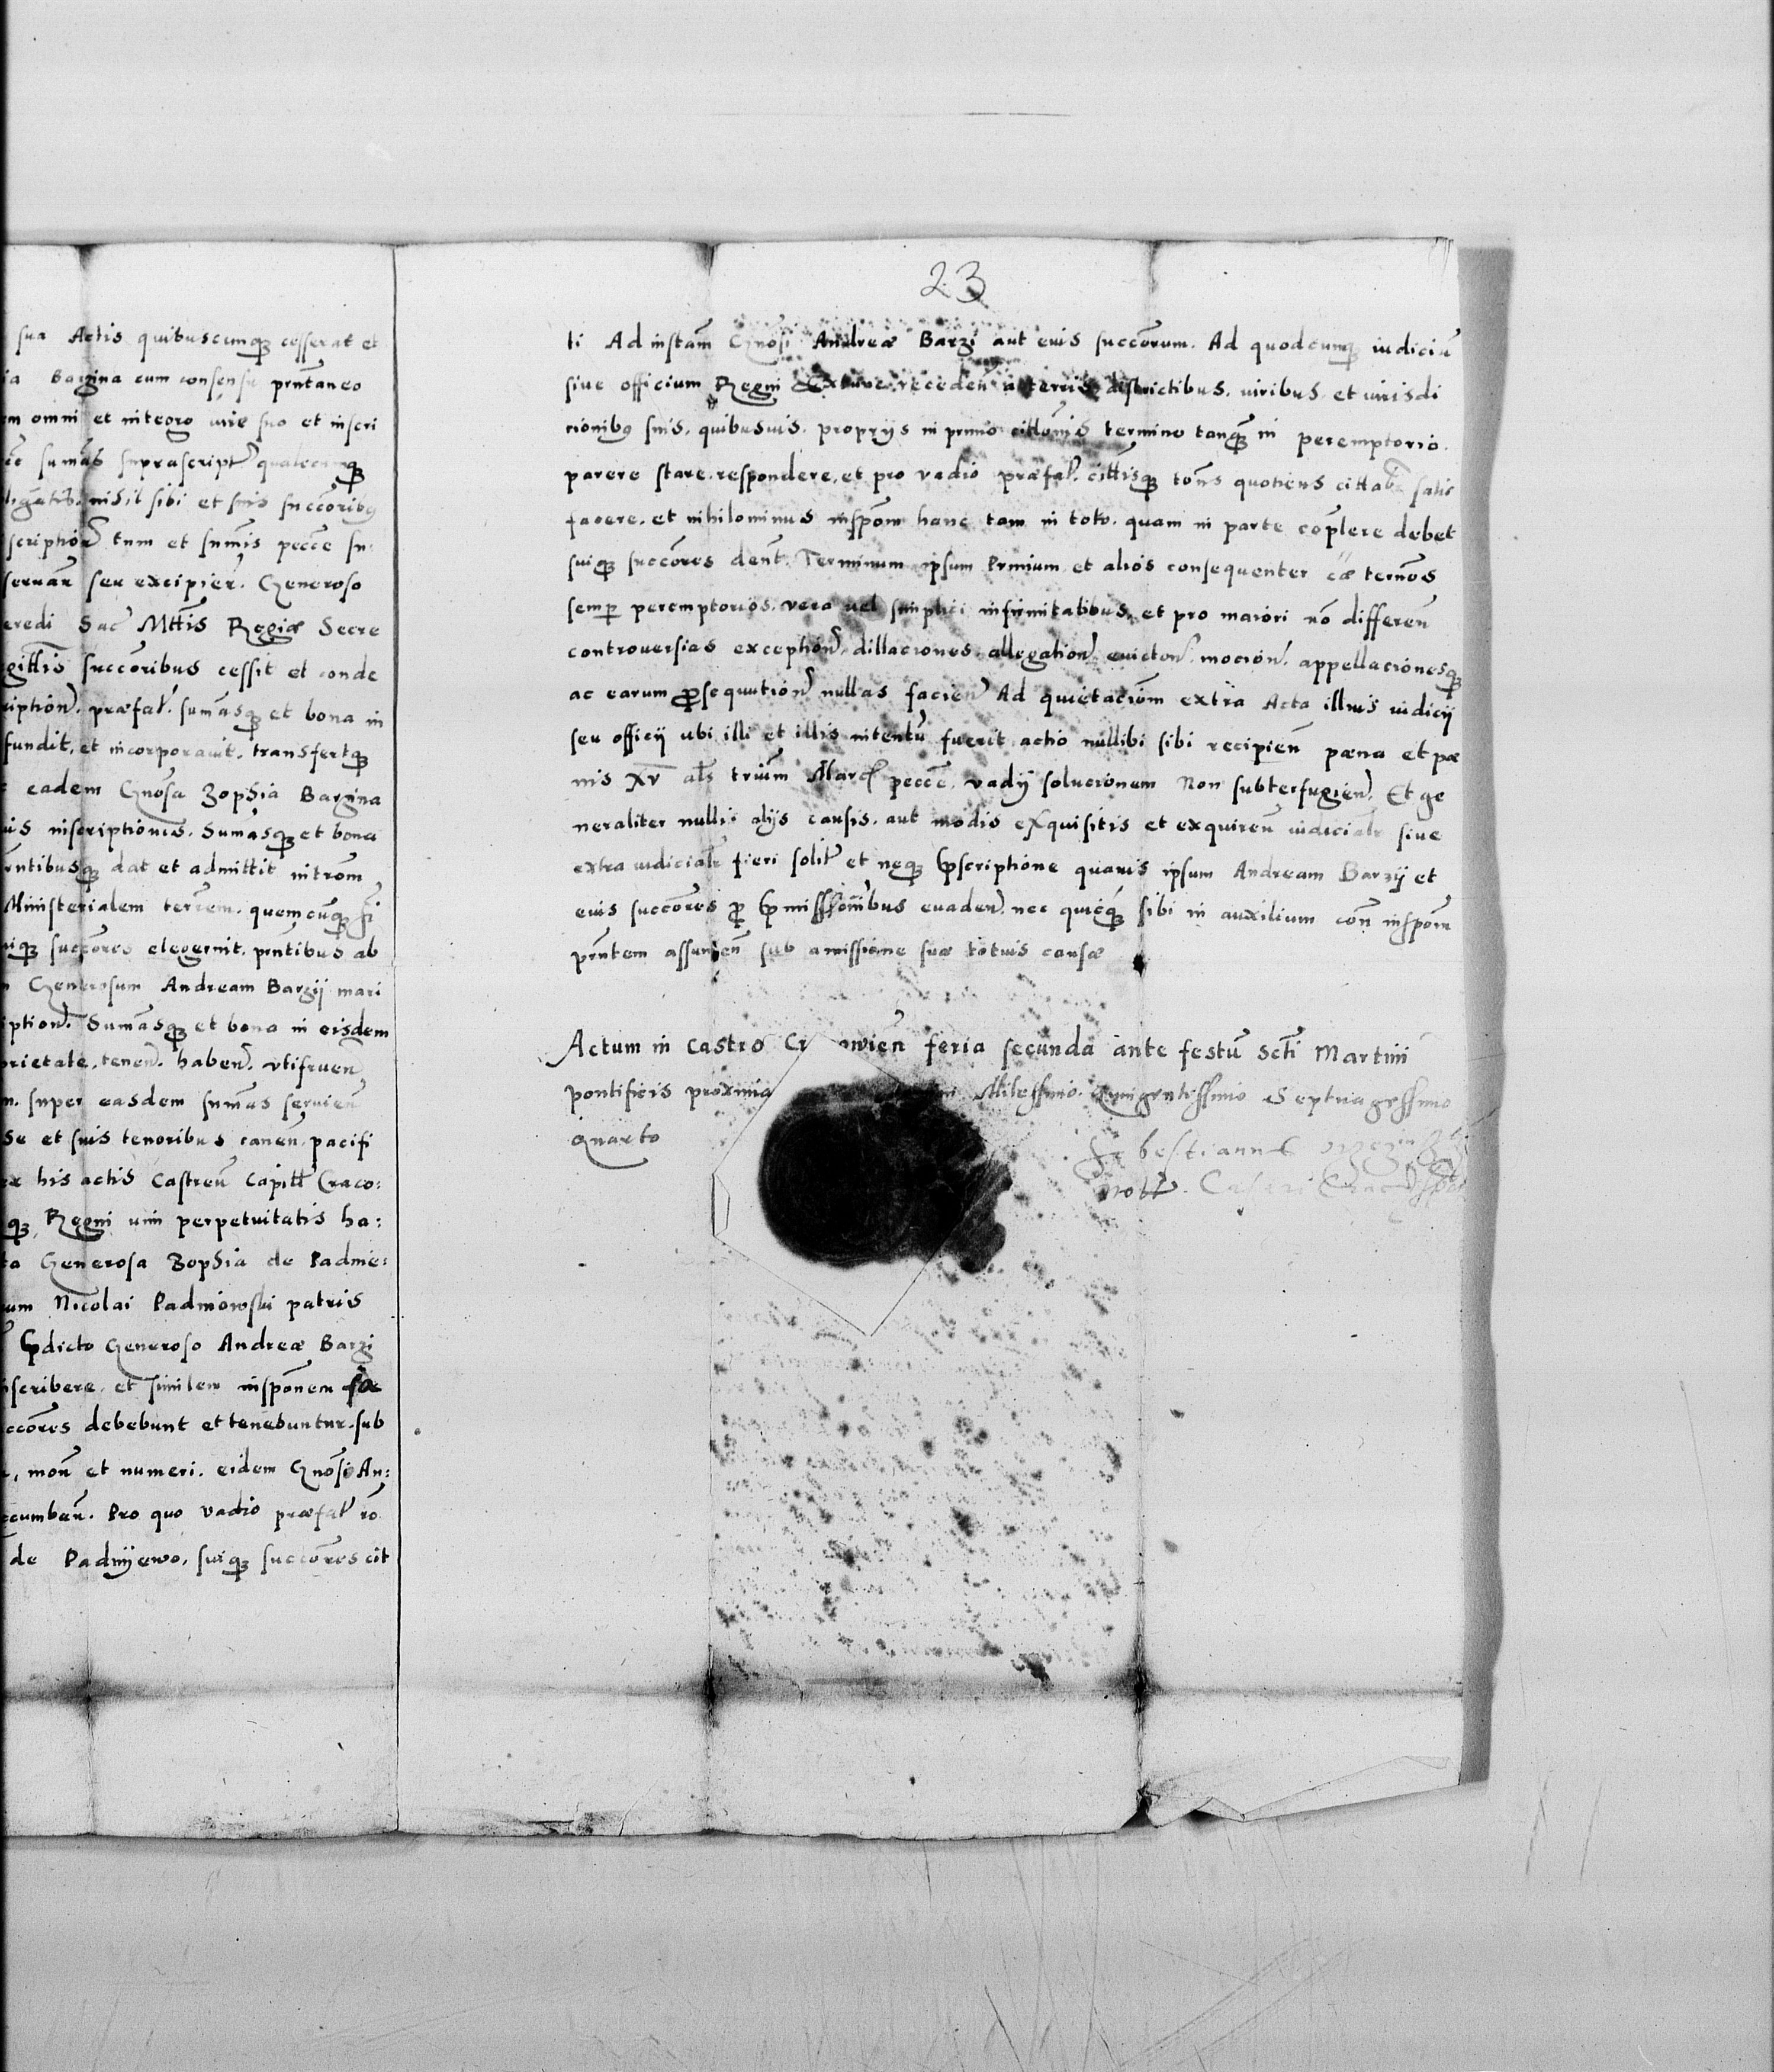 sua Actis quibuscunq; cesserat et
ia Bargina cum consensu prntaneo
m omni et integro iure suo et inscri
sumas suprascript qualecunq;
nihil sibi et suis succoribq
scription tum et summis pecce su
seruan seu excipien. Generoso
eredi Sac Mttis Regiæ Secre
gittis succoribus cessit et conde
ription. præfat. sumasq; et bona in
fundit, et incorporauit. transfertq;
eadem Gnosa Zophia Bargina
is inscriptionis. Sumasq; et bona
rntibusq; dat et admittit introm
Ministerialem terrem. quemcunq; si
iq; succores elegerint. prntibus ab
Generosum Andream Bargij mari
iption. Sumasq; et bona in eisdem
prietate, tenen. haben. vtifruen
m. super easdem sumas seruien
se et suis tenoribus canen. pacifi
ex his actis Castren Capitt Craco:
q; Regni uim perpetuitatis ha:
ta Generosa Zophia de Padnie:
um Nicolai Padniowski patris
pdicto Generoso Andreæ Barzi
nscribere, et similem insponem fa
ccores debebunt et tenebuntur. sub
mon et numeri. eidem Gnoso An:
ccumben. Pro quo vadio præfat ro
de Padnijewo, suiq; succores cit
23
ti Ad instam Gnosi Andreæ Barzi aut eius succorum. Ad quodcunq; iudiciu
siue officium Regni receden a terris districtibus. iuribus et iurisdi
cionibq suis, quibusuis. proprijs in primo cittonis termino tanq in peremptorio.
parere stare. respondere, et pro vadio præfat. cittisq; tons quotiens cittab satis
facere. et nihilominus inspom hanc tam in toto. quam in parte coplere debet
suiq; succores dent. Terminum ipsum Primum et alios consequenter eæ ternos
semp peremptorios. vera uel simplici infirmitatibus, et pro maiori no differen
controuersias exception, dillaciones allegation euicton mocion. appellacionesq;
ac earum psequution nullas facien Ad quietaciom extra Acta illius iudicij
seu officij ubi illi et illis intentu fuerit actio nullibi sibi recipien pæna et pæ
nis XV als trium Marc pecce. vadij solucionem Non subterfugien. Et ge
neraliter nullis alijs causis. aut modis exquisitis et exquiren iudicialr siue
extra iudicialr fieri solit et neq; pscriptione quauis ipsum Andream Barzij et
eius succores p pmissionibus euaden. nec quicq; sibi in auxilium con inspom
prntem assumen sub amissione suæ totius causæ
Actum in Castro Cr owien feria secunda ante festu Scti Martini
pontificis proxima Milessimo. Quingentissimo Septuagessimo
quarto
Sebestianus
nott.